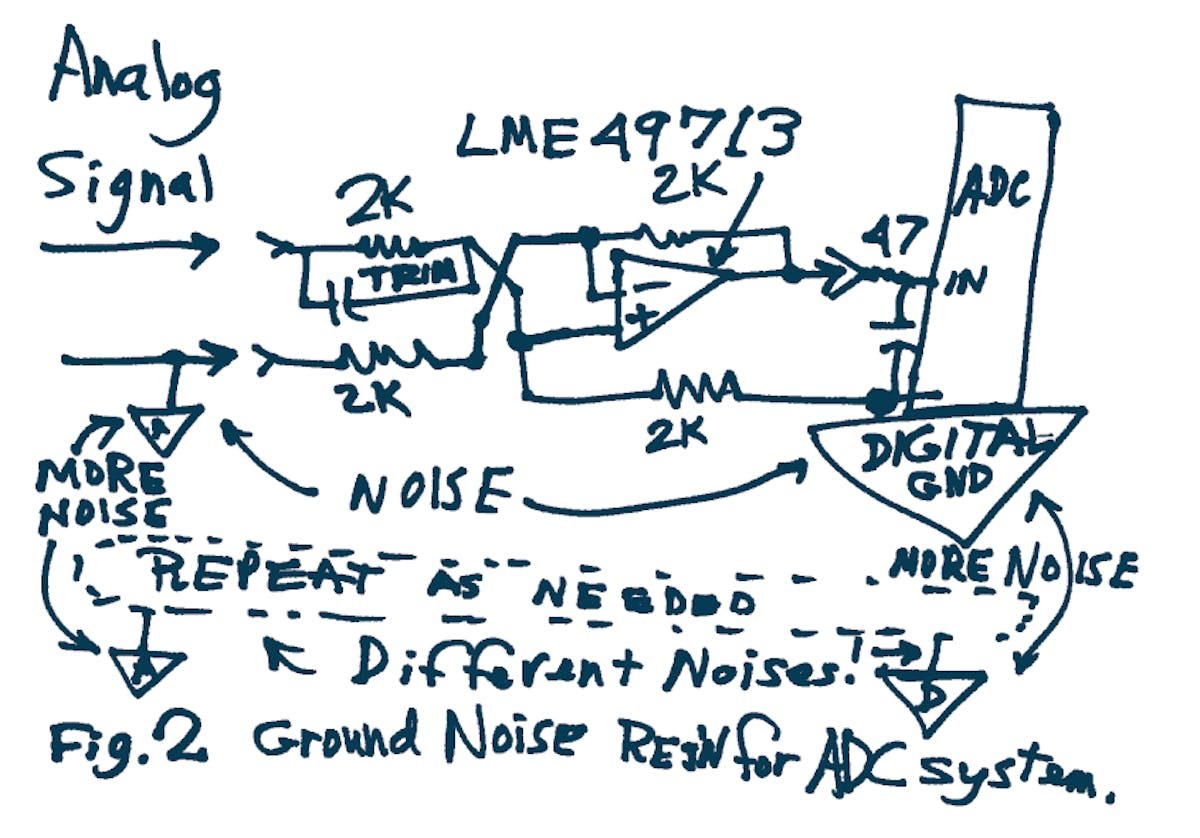 Analog
Signal
LME49713
2K
2K
TRIM
2K
2K
47
ADC
IN
-
+
A
DIGITAL
GND
MORE
NOISE
NOISE
MORE NOISE
REPEAT AS NEEDED
A
Different Noises!
D
Fig.2 Ground Noise REJ'N for ADC system.